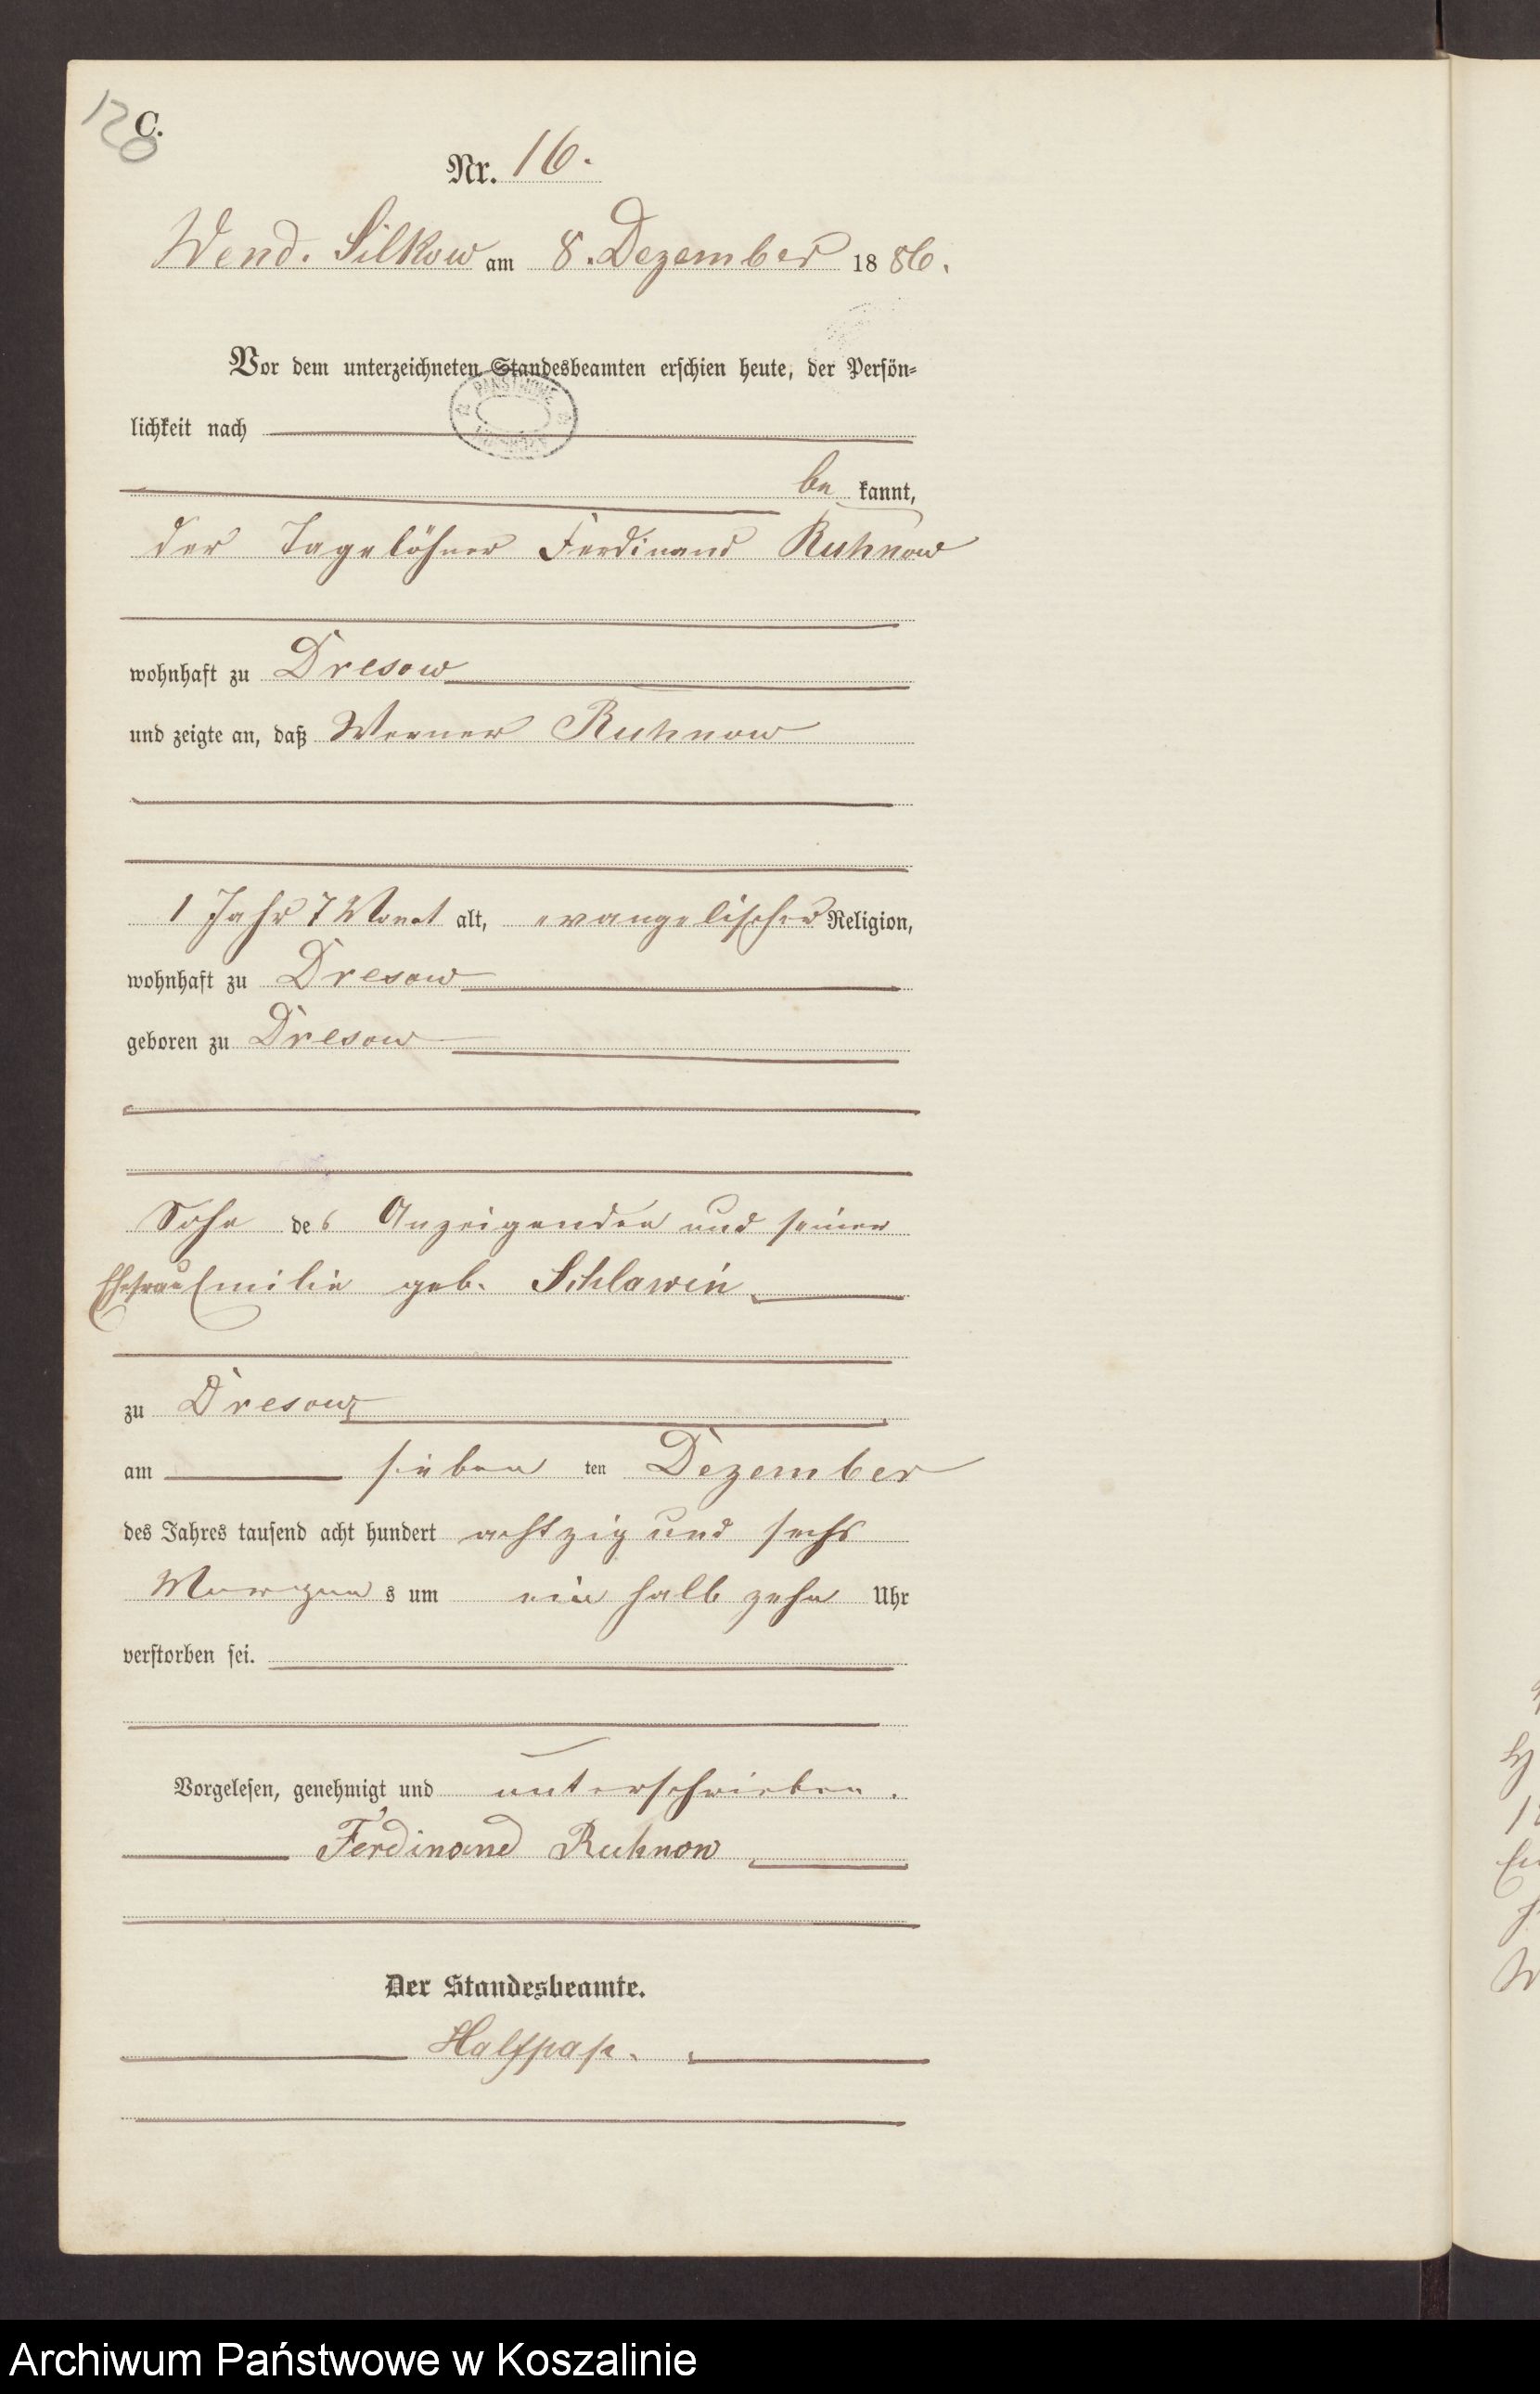 128
C.
Nr. 16.
Wend. Silkow am 8. Dezember 1886.
Vor dem unterzeichneten Standesbeamten erschien heute, der Persön-
lichkeit nach
PAŃSTWOWE
be kannt,
der Tagelöhner Ferdinand Ruhnow
wohnhaft zu Dresow
und zeigte an, daß Werner Ruhnow
1 Jahr 7 Monat alt, evangelischer Religion,
wohnhaft zu Dresow
geboren zu Dresow
Sohn des Anzeigenden und seiner
Ehefrau Emilie geb. Schlawin
zu Dresow
am sieben ten Dezember
des Jahres tausend acht hundert achtzig und sechs
Morgens um ein halb zehn Uhr
verstorben sei.
Vorgelesen, genehmigt und unterschrieben.
Ferdinand Ruhnow
Der Standesbeamte.
Halfpap.
Archiwum Państwowe w Koszalinie